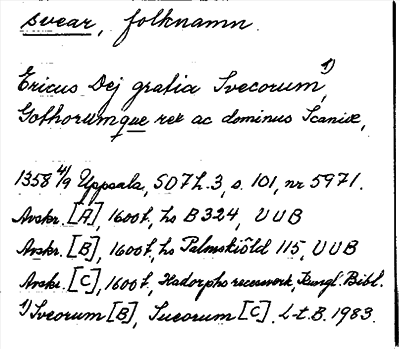 svear, folknamn.
Ericus Dej gratia Svecorum,¹⁾
Gothorumque rex ac dominus Scaniæ,
1358 4/9 Uppsala, SD 7 h. 3, s. 101, nr 5971.
Avskr. [A], 1600 t, hs B 324, UUB
Avskr. [B], 1600 t, hs Palmskiöld 115, UUB
Avskr. [C], 1600 t, Hadorphs recesverk, Kungl. Bibl.
¹⁾ Sveorum [B], Sueorum [C]. L-t. B. 1983.